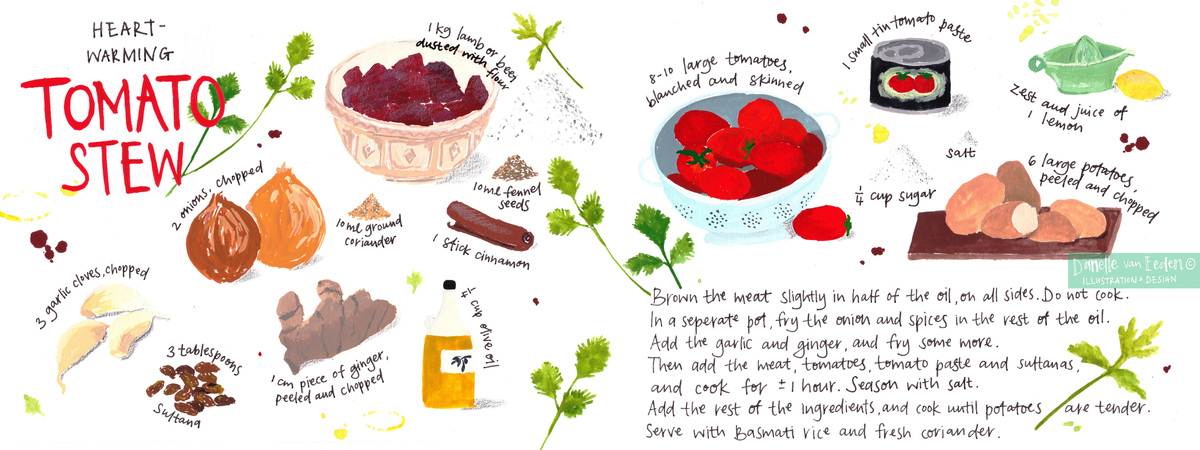 HEART-
WARMING
TOMATO
STEW
1 kg lamb or beef
dusted with flour
2 onions, chopped
10 ml ground
coriander
10 ml fennel
seeds
1 stick cinnamon
3 garlic cloves, chopped
3 tablespoons
Sultana
1 cm piece of ginger,
peeled and chopped
1/4 cup olive oil
8-10 large tomatoes,
blanched and skinned
1 small tin tomato paste
zest and juice of
1 lemon
salt
1/4 cup sugar
6 large potatoes,
peeled and chopped
Danelle van Eeden ©
ILLUSTRATION + DESIGN
Brown the meat slightly in half of the oil, on all sides. Do not cook.
In a seperate pot, fry the onion and spices in the rest of the oil.
Add the garlic and ginger, and fry some more.
Then add the meat, tomatoes, tomato paste and sultanas,
and cook for ± 1 hour. Season with salt.
Add the rest of the ingredients, and cook until potatoes are tender.
Serve with Basmati rice and fresh coriander.